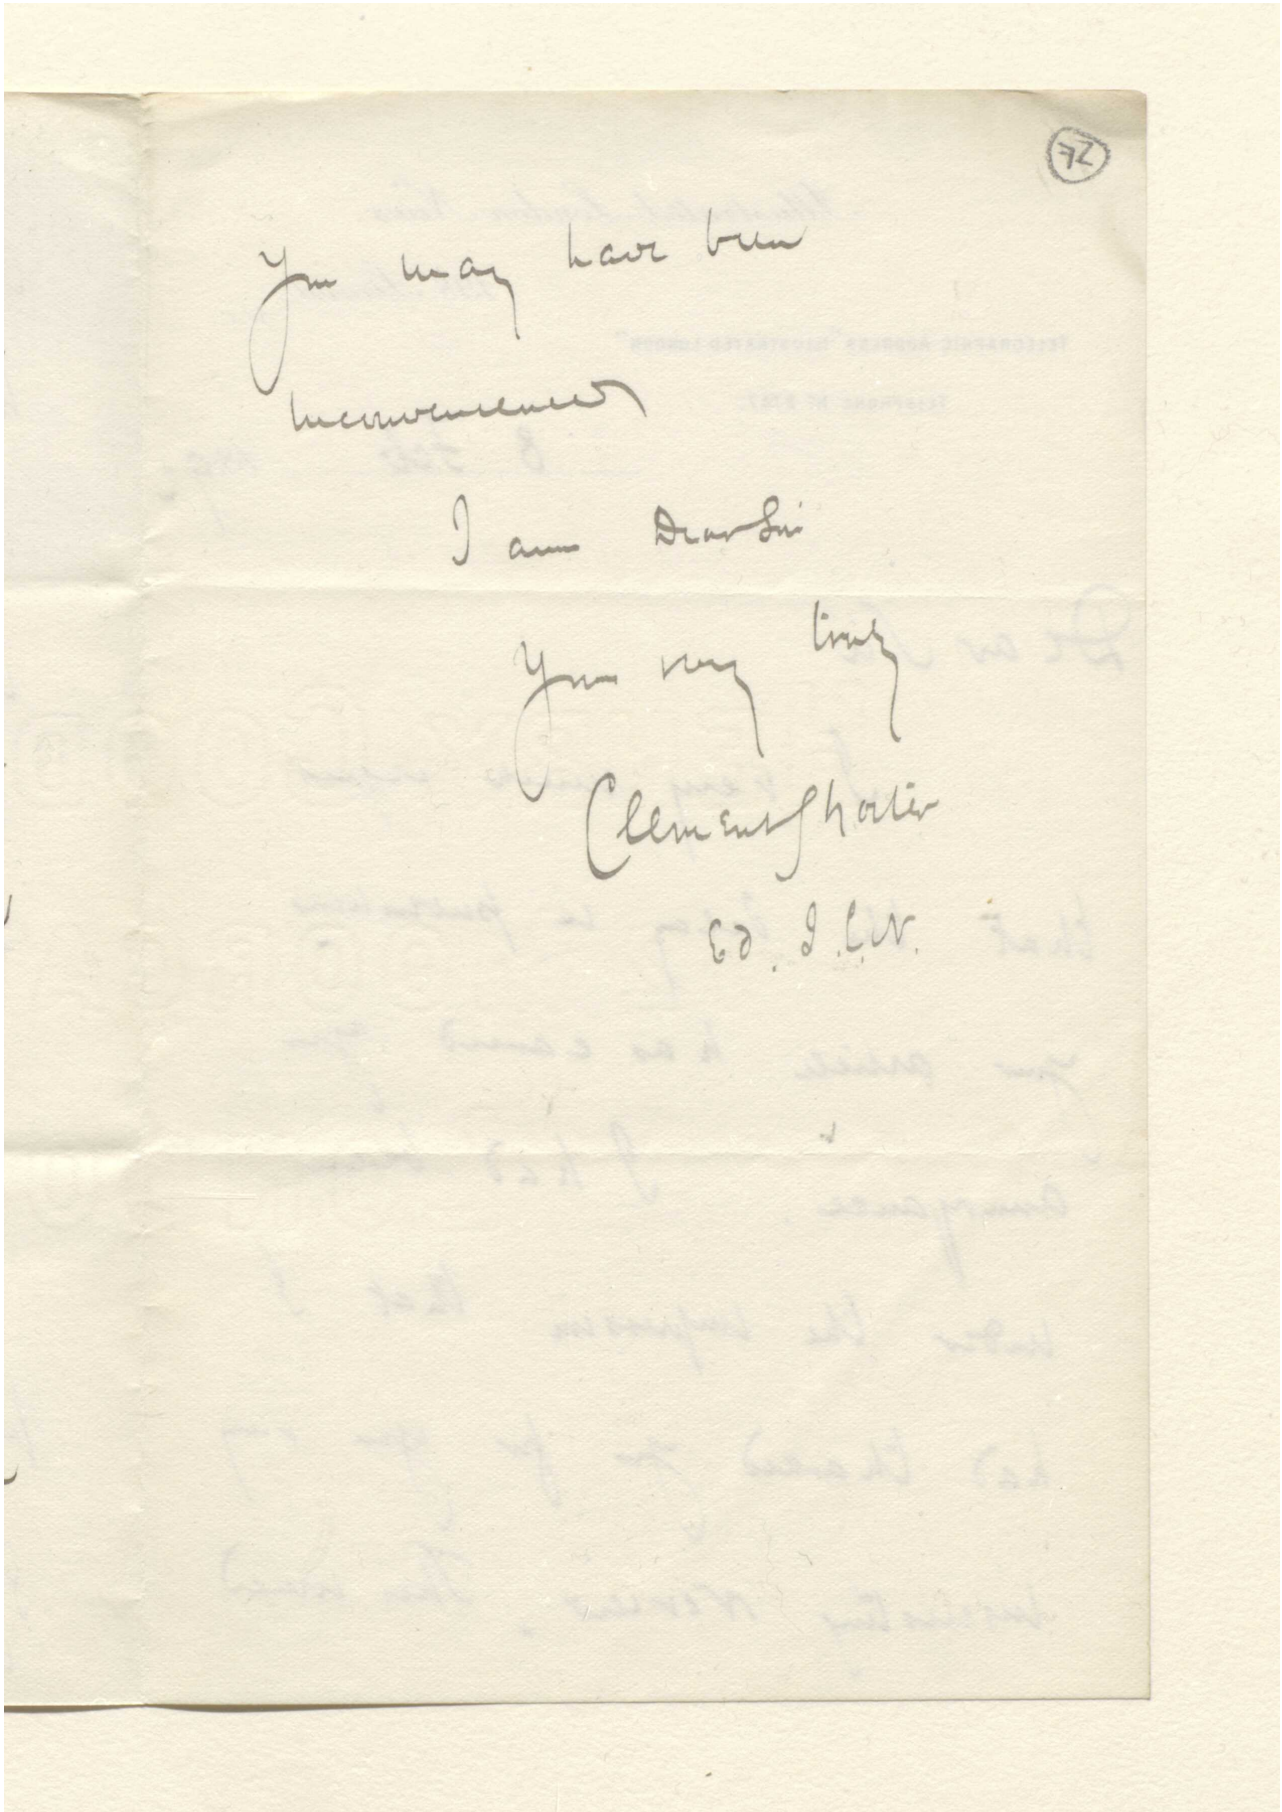 72
You may have been
inconvenienced
I am Dear Sir
Yours very truly
Clement Shorter
Ed. I.L.N.